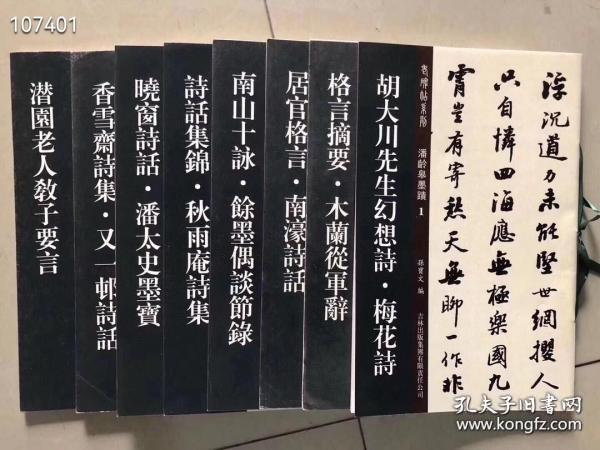 107401
潜園老人教子要言
香雪齋詩集·又一邨詩話
曉窗詩話·潘太史墨寶
詩話集錦·秋雨庵詩集
南山十詠·餘墨偶談節錄
居官格言·南濠詩話
格言摘要·木蘭從軍辭
胡大川先生幻想詩·梅花詩
老碑帖系列
潘齡皋墨蹟 1
孫寶文 編
吉林出版集團有限責任公司
浮沉道力未能堅世網攖人
只自憐四海應無極樂國九
霄豈有寄愁天無聊一作非
孔夫子旧书网
www.kongfz.com